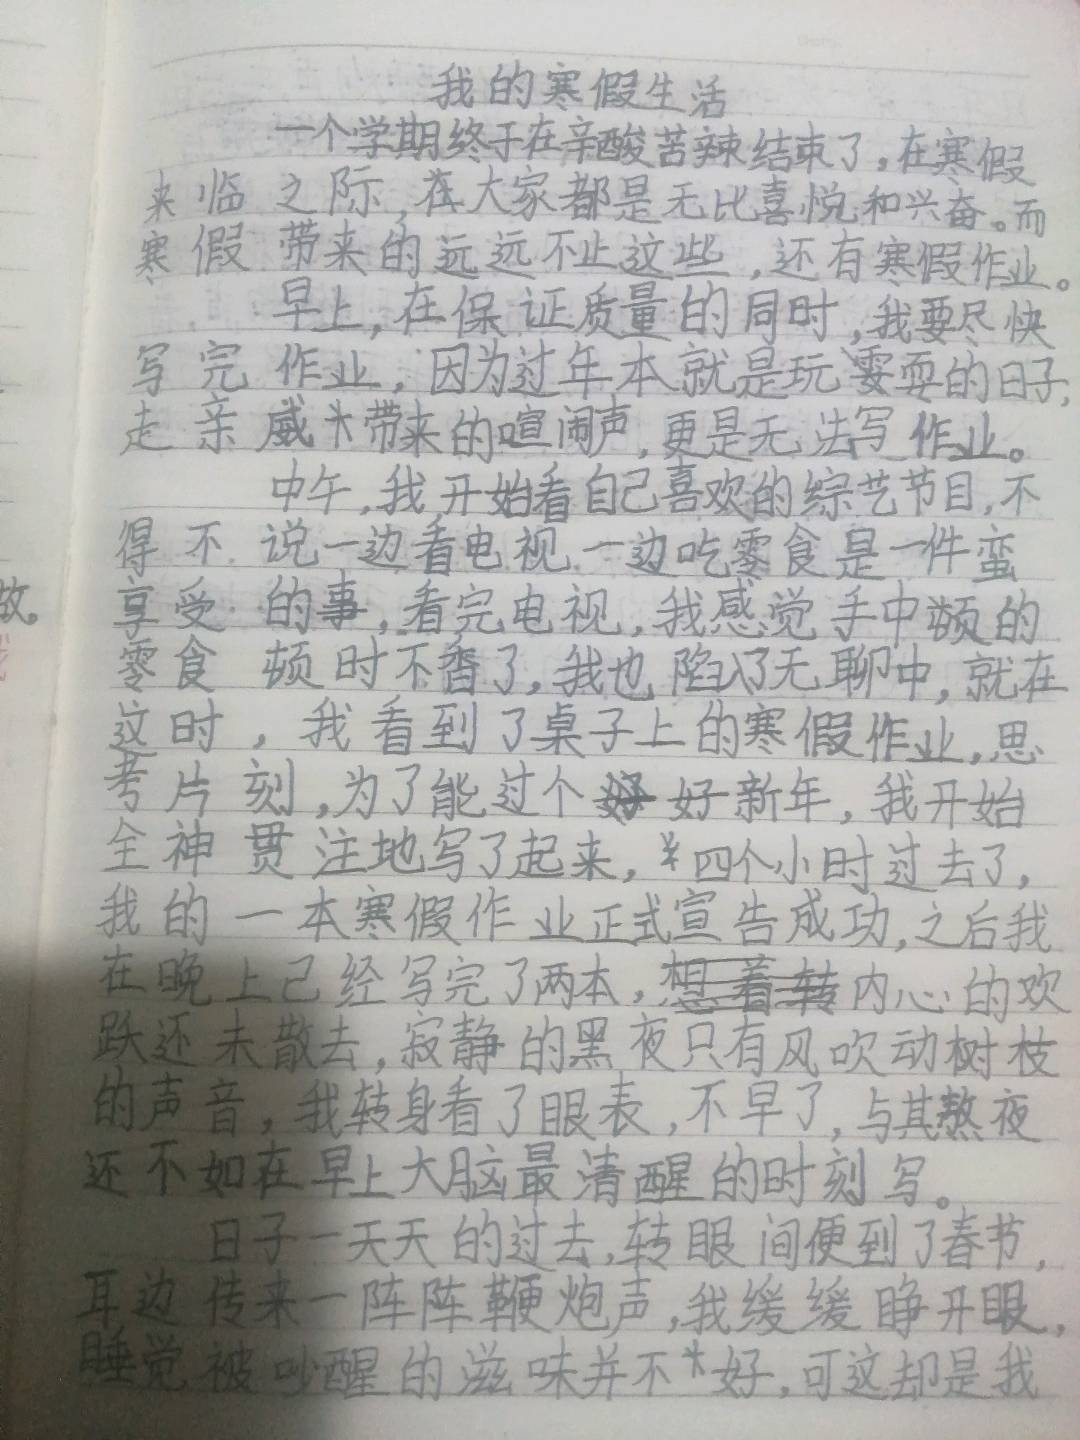 我的寒假生活
一个学期终于在辛酸苦辣结束了,在寒假
来临之际,在大家都是无比喜悦和兴奋。而
寒假带来的远远不止这些,还有寒假作业。
早上,在保证质量的同时,我要尽快
写完作业,因为过年本就是玩耍的日子,
走亲戚带来的喧闹声,更是无法写作业。
中午,我开始看自己喜欢的综艺节目,不
得不说一边看电视一边吃零食是一件蛮
享受的事,看完电视,我感觉手中的
零食顿时不香了,我也陷入了无聊中,就在
这时,我看到了桌子上的寒假作业,思
考片刻,为了能过个好新年,我开始
全神贯注地写了起来,四个小时过去了,
我的一本寒假作业正式宣告成功,之后我
在晚上已经写完了两本,内心的欢
跃还未散去,寂静的黑夜只有风吹动树枝
的声音,我转身看了眼表,不早了,与其熬夜
还不如在早上大脑最清醒的时刻写。
日子一天天的过去,转眼间便到了春节,
耳边传来一阵阵鞭炮声,我缓缓睁开眼,
睡觉被吵醒的滋味并不好,可这却是我
故。